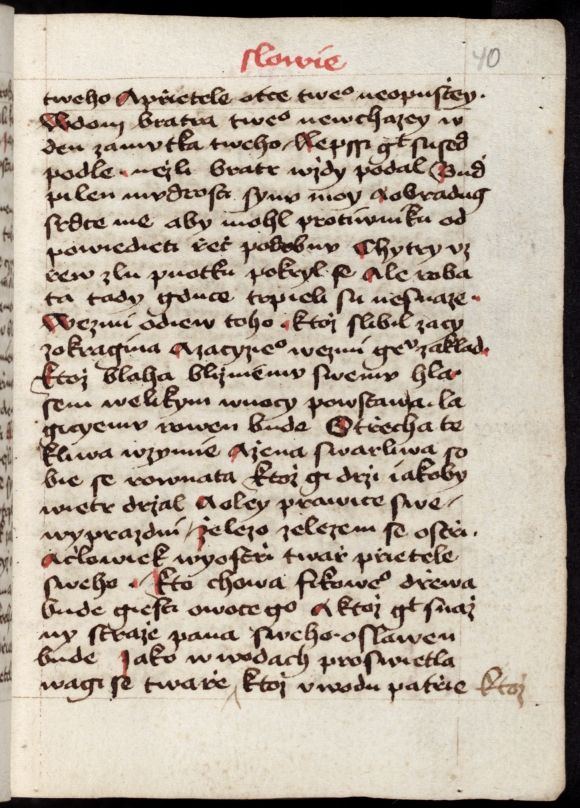 slowie 40
tweho Aprietele otce tweº neopustey.
Wdom bratra tweº newchazey w
den zamutka tweho Lepssi gt susied
podle nezli bratr wzdy podal Bud
pilen mudrosti synu moy Aobradug
srdce me aby mohl protiwniku od
powiedieti rec podobnu Chytry uz
rew zlu pokryl se Ale roba
ta tady gduce trpieli su nesnaze.
Wezmi odiew toho ktoz slibil zacy
zokragina Azacyzieº wezmi geº zaklad.
Ktoz blaha blizniemu swemu hla
sem welikym wnocy powstawa. la
gicyemu rowen bude Strzecha te
kliwa wzymie Azena swarliwa so
bie se rownata ktoz gi drzi iakoby
wietr drzal Aoley prawice swe
wyprazdni / zelezo zelezem se ostri.
Aclowiek wyostri twar prietele
sweho. Kto chowa fikoweº drzewa
bude giesti owoce geo Aktoz gt straz
ny straze pana sweho oslawen
bude Jako wwodach proswietla
wagi se tware ktoz uwodu patrie ktoz